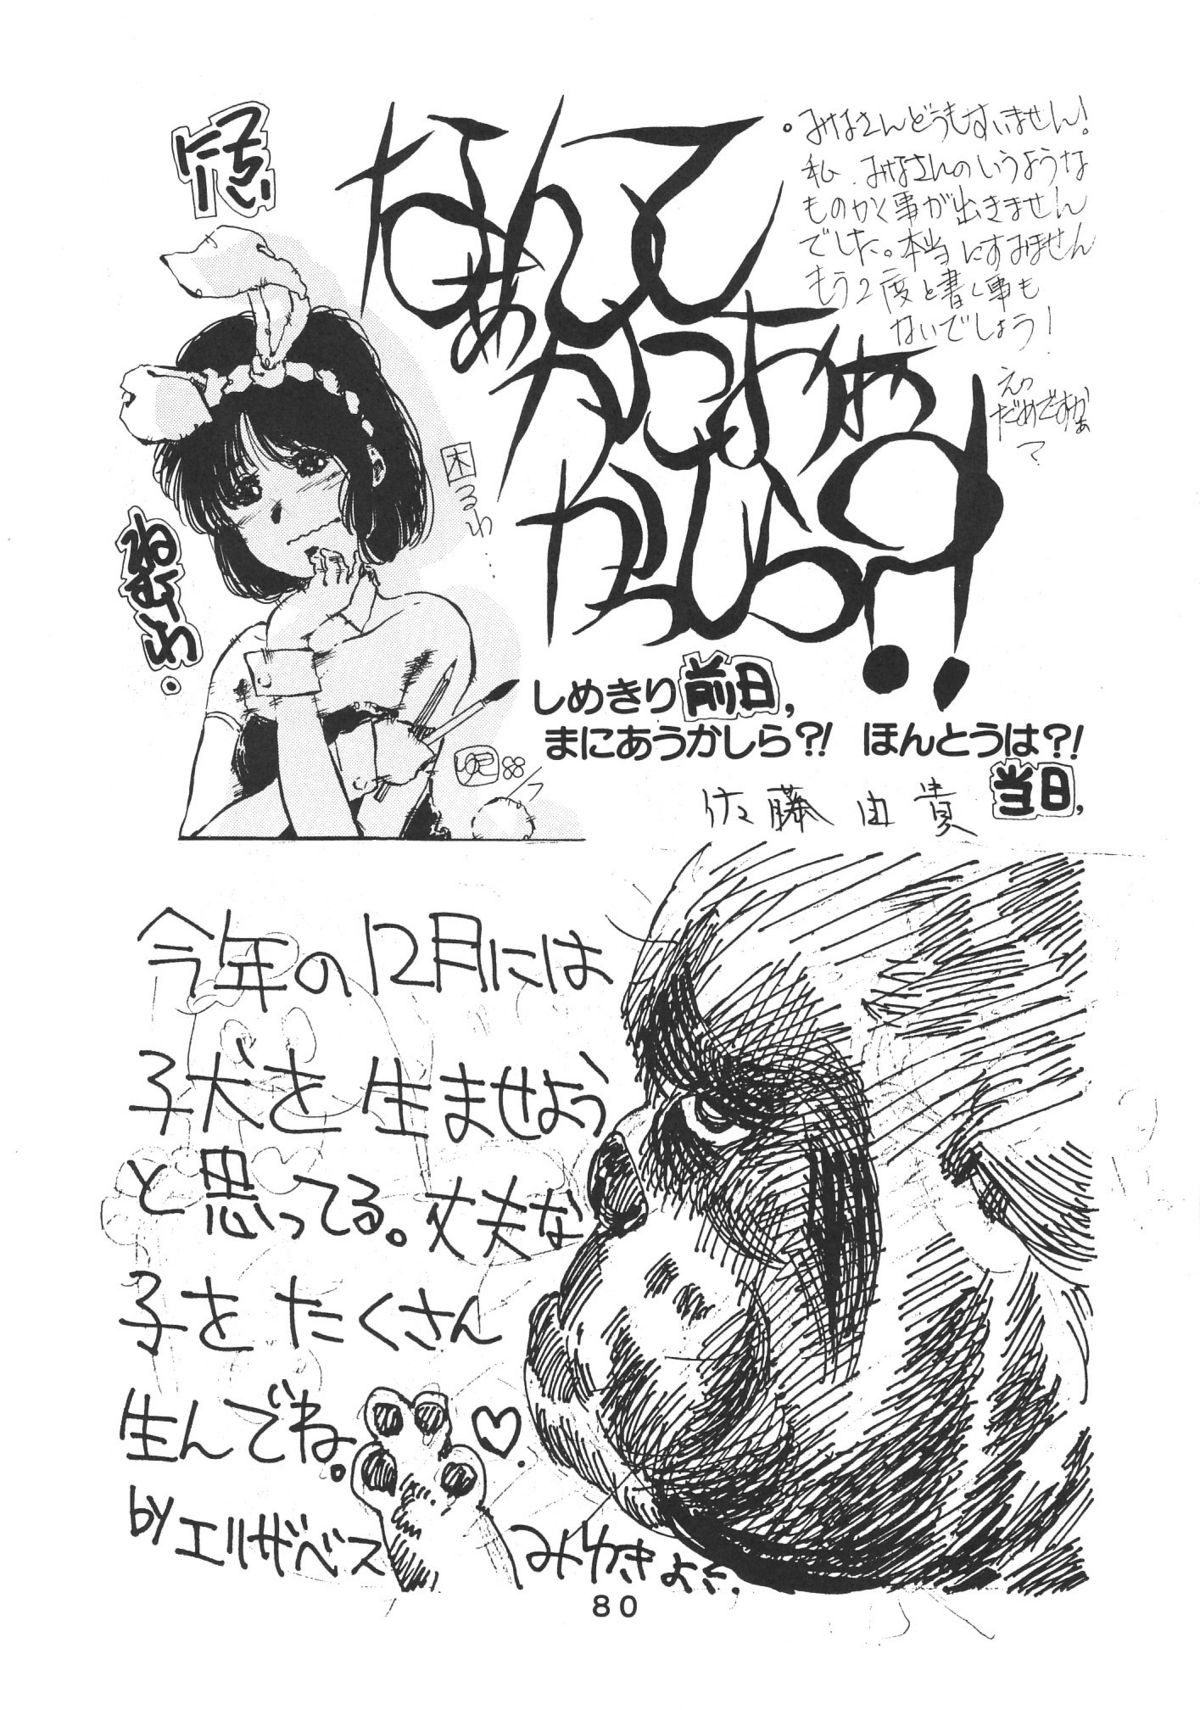 なんて
なぁ
かっちゃ
かしら?!
・みなさんどうもすいません!
私、みなさんのいうような
ものかく事が出きません
でした。本当にすみません
もう2度と書く事も
ないでしょう!
えっ
だめですかぁ
?
困るわ…
ねむいわ.
しめきり前日,
まにあうかしら?! ほんとうは?!
当日,
佐藤由貴
88
今年の12月には
子犬を生ませよう
と思ってる。丈夫な
子をたくさん
生んでね。♡.
by エリザベス みゆきより.
80